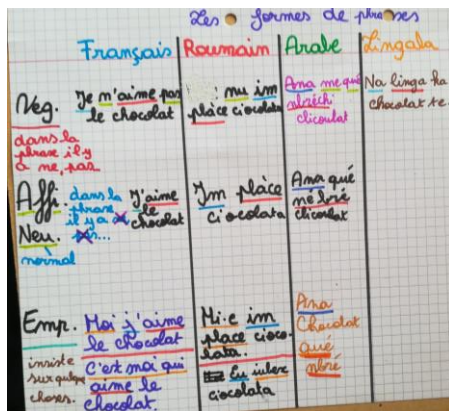 Les formes de phrases
Français Roumain Arabe Lingala
Neg.
dans la
phrase il y
a ne, pas
Je n'aime pas
le chocolat
nu im
place ciocolata
Ana me qué
nbréchi
clicoulat
Na linga ka
chocolat te.
Affi.
Neu.
normal
dans la
phrase
il y a
pas...
J'aime
le
chocolat
Im place
ciocolata
Ana qué
ne bré
clicoulat
Emp.
insiste
sur quelque
choses.
Moi j'aime
le chocolat
C'est moi qui
aime le
chocolat.
Mi-e im
place cioco-
lata.
Eu iubesc
ciocolata
Ana
Chocolat
qué
nbré